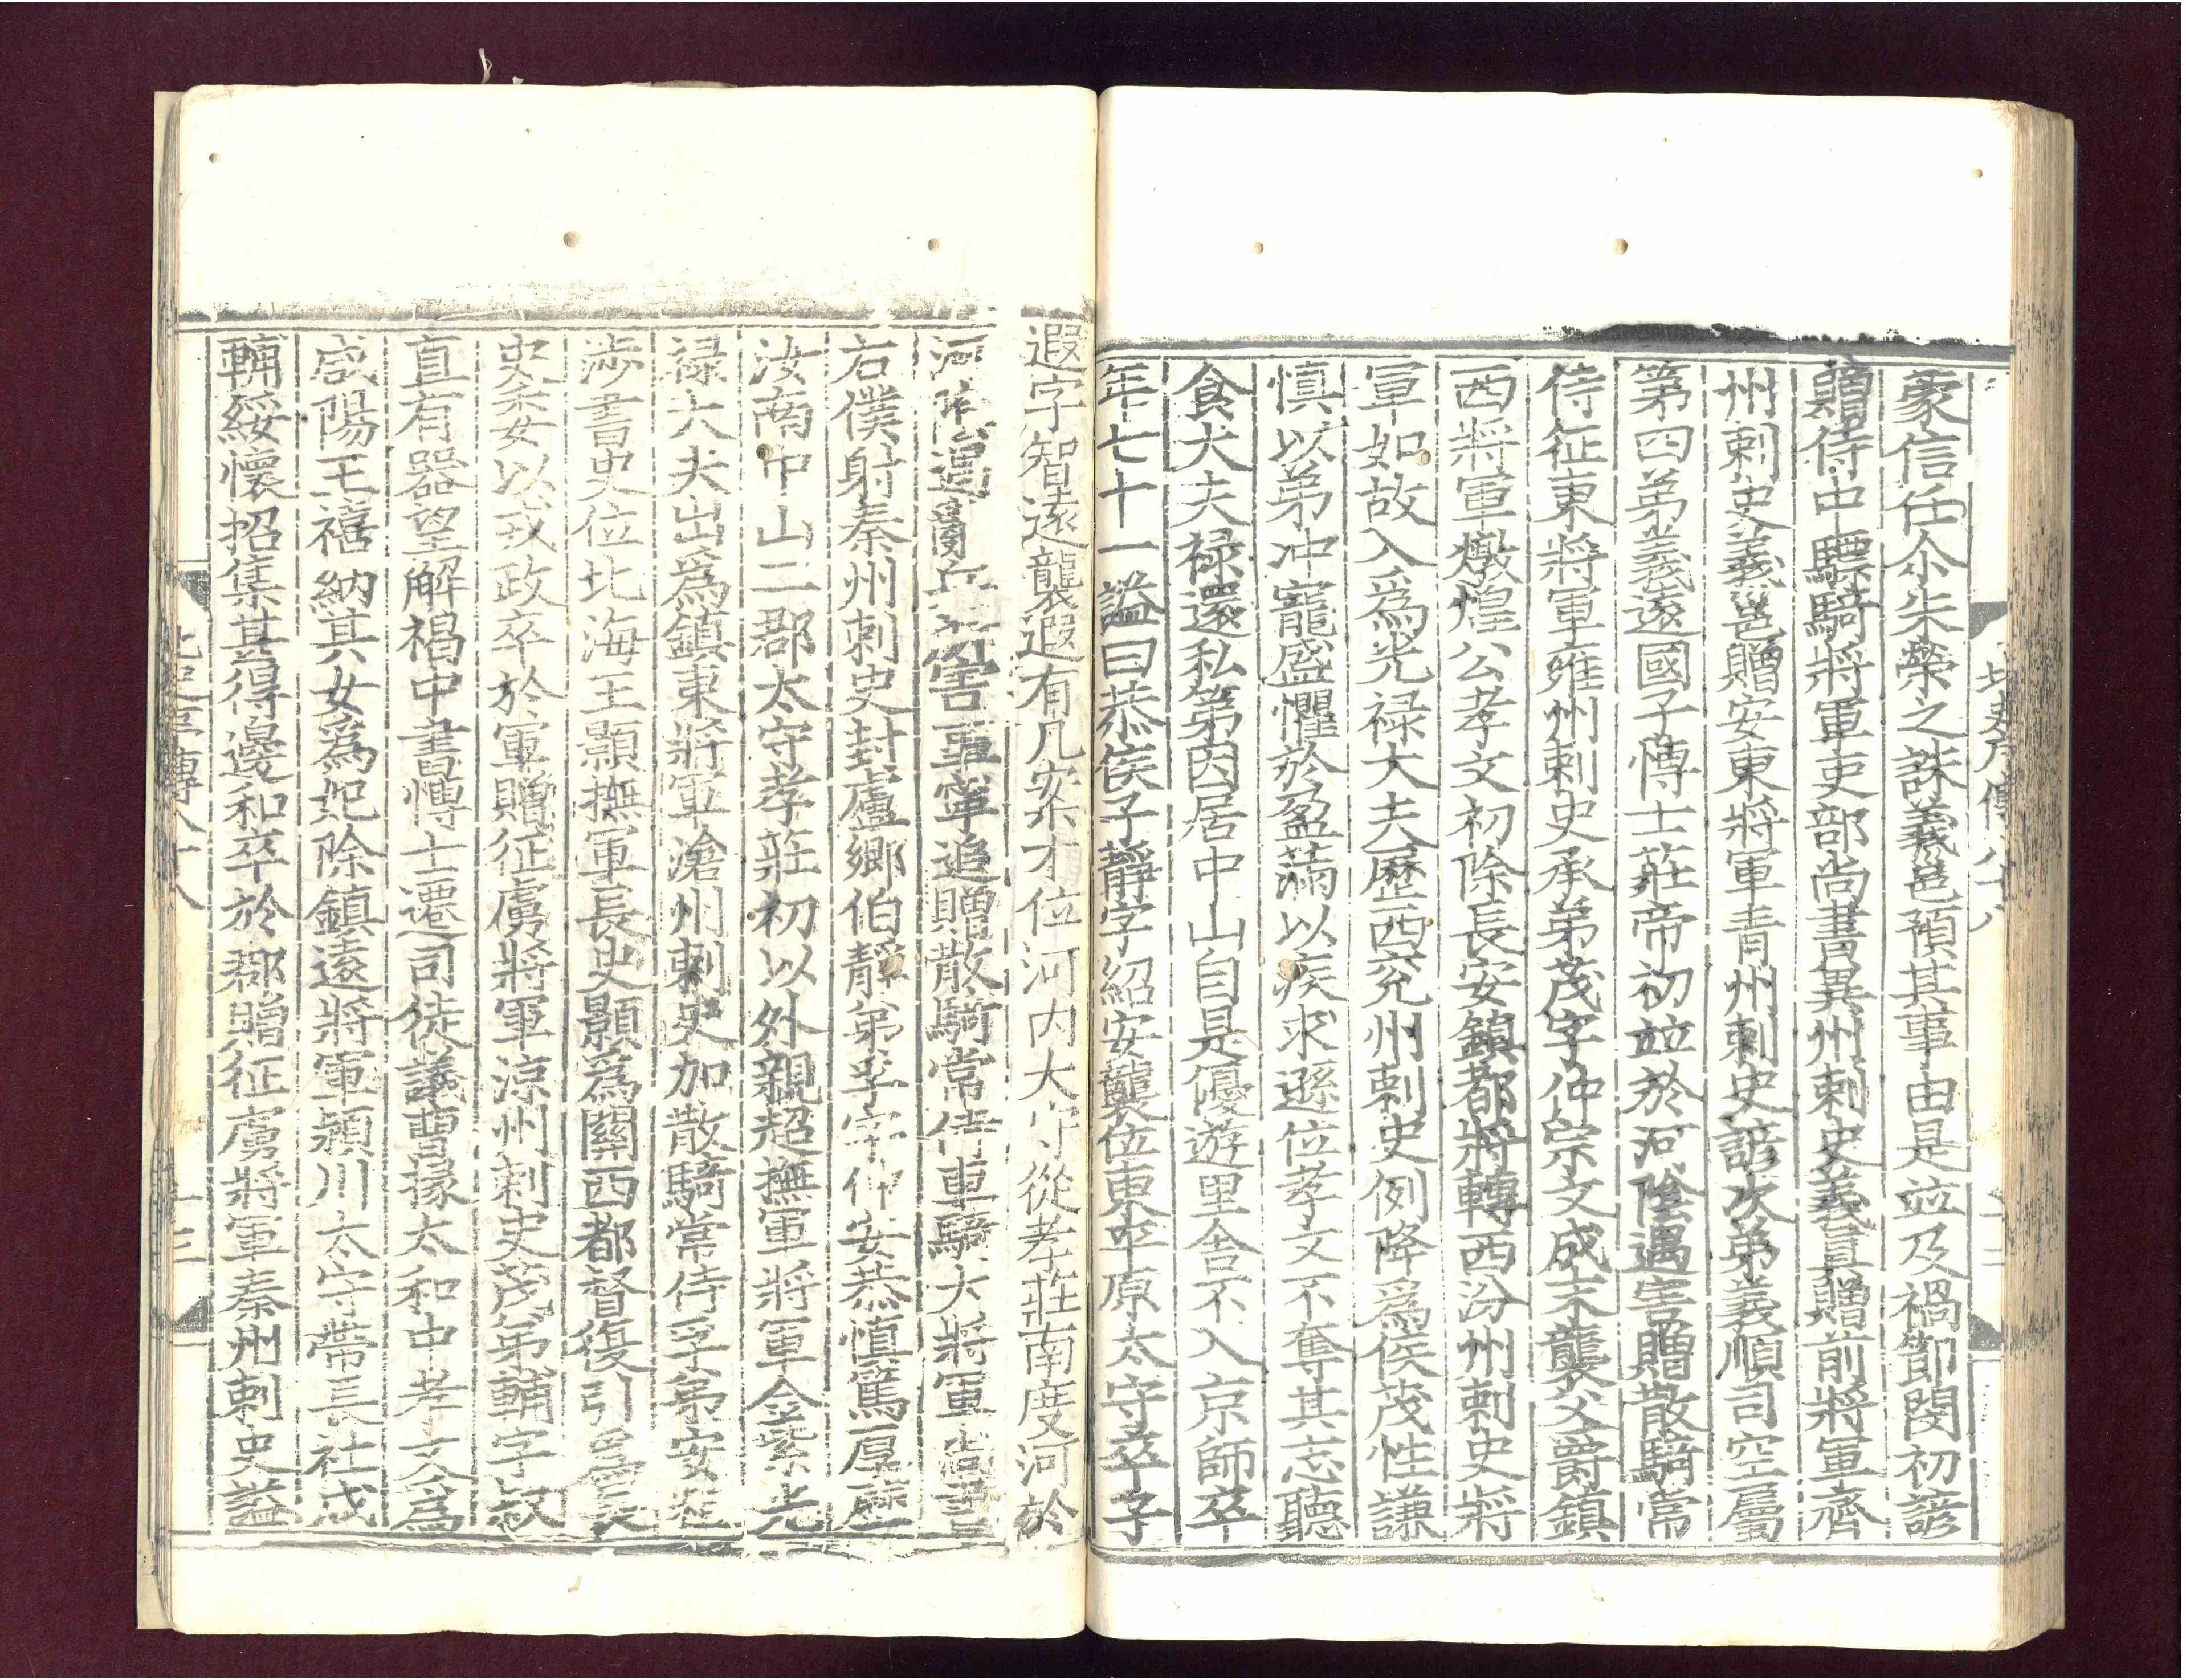 豪信任尒朱榮之誅義邕預其事由是竝及禍節閔初諺
贈侍中驃騎將軍吏部尚書兾州刺史義真贈前將軍齊
州刺史義邕贈安東將軍青州刺史諺次弟義順司空屬
第四弟義遠國子愽士莊帝初竝於河陰遇害贈散騎常
侍征東將軍雍州刺史承弟茂字仲宗文成末襲父爵鎮
西將軍燉煌公孝文初除長安鎮都將轉西汾州刺史將
軍如故入爲光禄大夫歷西兖州刺史例降爲侯茂性謙
慎以弟冲寵盛懼於盈滿以疾求遜位孝文不奪其志聽
食大夫禄還私第因居中山自是優遊里舎不入京師卒
年七十一謚曰恭侯子靜字紹安襲位東平原太守卒子
遐字智遠襲遐有几案才位河内太守從孝莊南度河於
河陰遇亂兵所害事寧追贈散騎常侍車騎大將軍尚書
右僕射秦州刺史封盧鄉伯靜弟孚字仲安恭慎篤厚歷
汝南中山二郡太守孝莊初以外親超撫軍將軍金紫光
禄大夫出爲鎮東將軍滄州刺史加散騎常侍孚弟安
渉書史位北海王顥撫軍長史顥爲關西都督復引爲長
史委以戎政卒於軍贈征虜將軍涼州刺史茂弟輔字叔
直有器望解褐中書愽士遷司徒議曹掾太和中孝文爲
咸陽王禧納其女爲妃除鎮遠將軍潁川太守帶長社戍
輔綏懷招集甚得邊和卒於郡贈征虜將軍秦州刺史謚